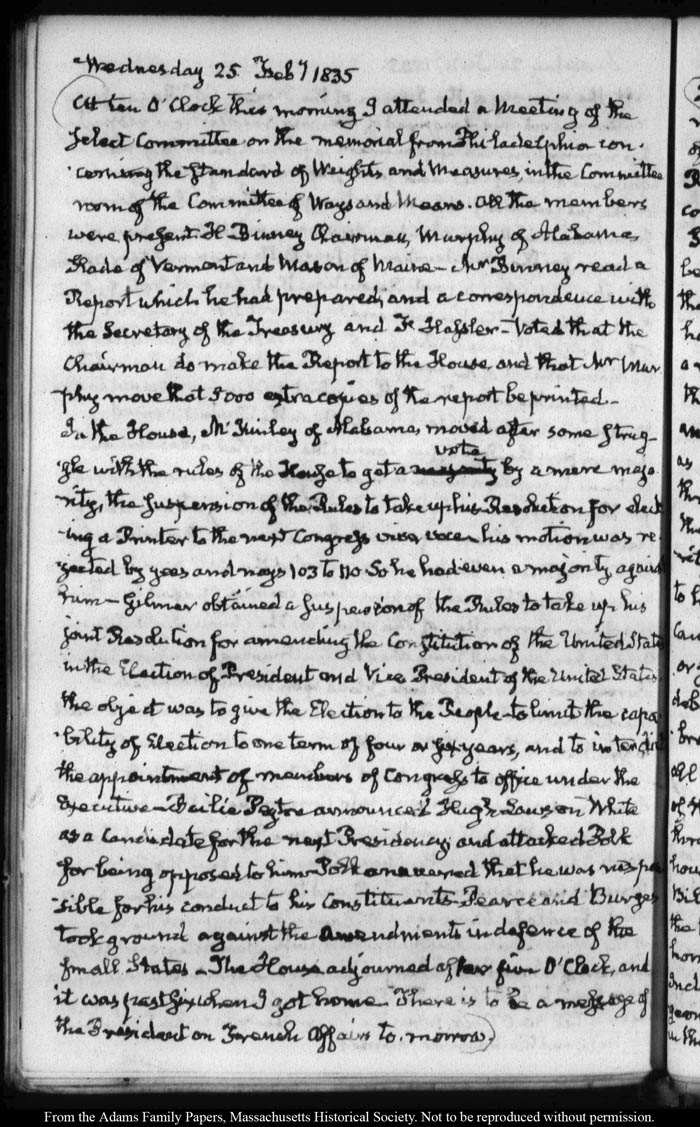 Wednesday 25. Feby 1835
At ten O'Clock this morning I attended a Meeting of the
Select Committee on the memorial from Philadelphia con-
cerning the Standard of Weights and Measures, in the Committee
room of the Committee of Ways and Means. All the members
were present. H. Binney Chairman, Murphy of Alabama,
Slade of Vermont and Mason of Maine — Mr Binney read a
Report which he had prepared, and a correspondence with
the Secretary of the Treasury and F. Hassler — Voted that the
Chairman do make the Report to the House, and that Mr Mur-
phy move that 5000 extra copies of the report be printed —
In the House, McKinley of Alabama, moved after some strug-
vote
gle with the rules of the House to get a majority by a mere majo-
rity, the suspension of the Rules to take up his Resolution for elect-
ing a Printer to the next Congress viva voce, his motion was re-
jected by yeas and nays 103 to 110 So he had even a majority against
him — Gilmer obtained a suspension of the Rules to take up his
joint Resolution for amending the Constitution of the United States
in the Election of President and Vice President of the United States
the object was to give the Election to the People — to limit the capa-
bility of Election to one term of four or six years, and to interdict
the appointment of members of Congress to office under the
Executive — Bailie Peyton announced Hugh Lawson White
as a candidate for the next Presidency, and attacked Polk
for being opposed to him — Polk answered that he was respon-
sible for his conduct to his Constituents — Pearce and Burges
took ground against the Amendments in defence of the
small States — The House adjourned after five O'Clock, and
it was past six when I got home. There is to be a message of
the President on French Affairs to-morrow.
From the Adams Family Papers, Massachusetts Historical Society. Not to be reproduced without permission.